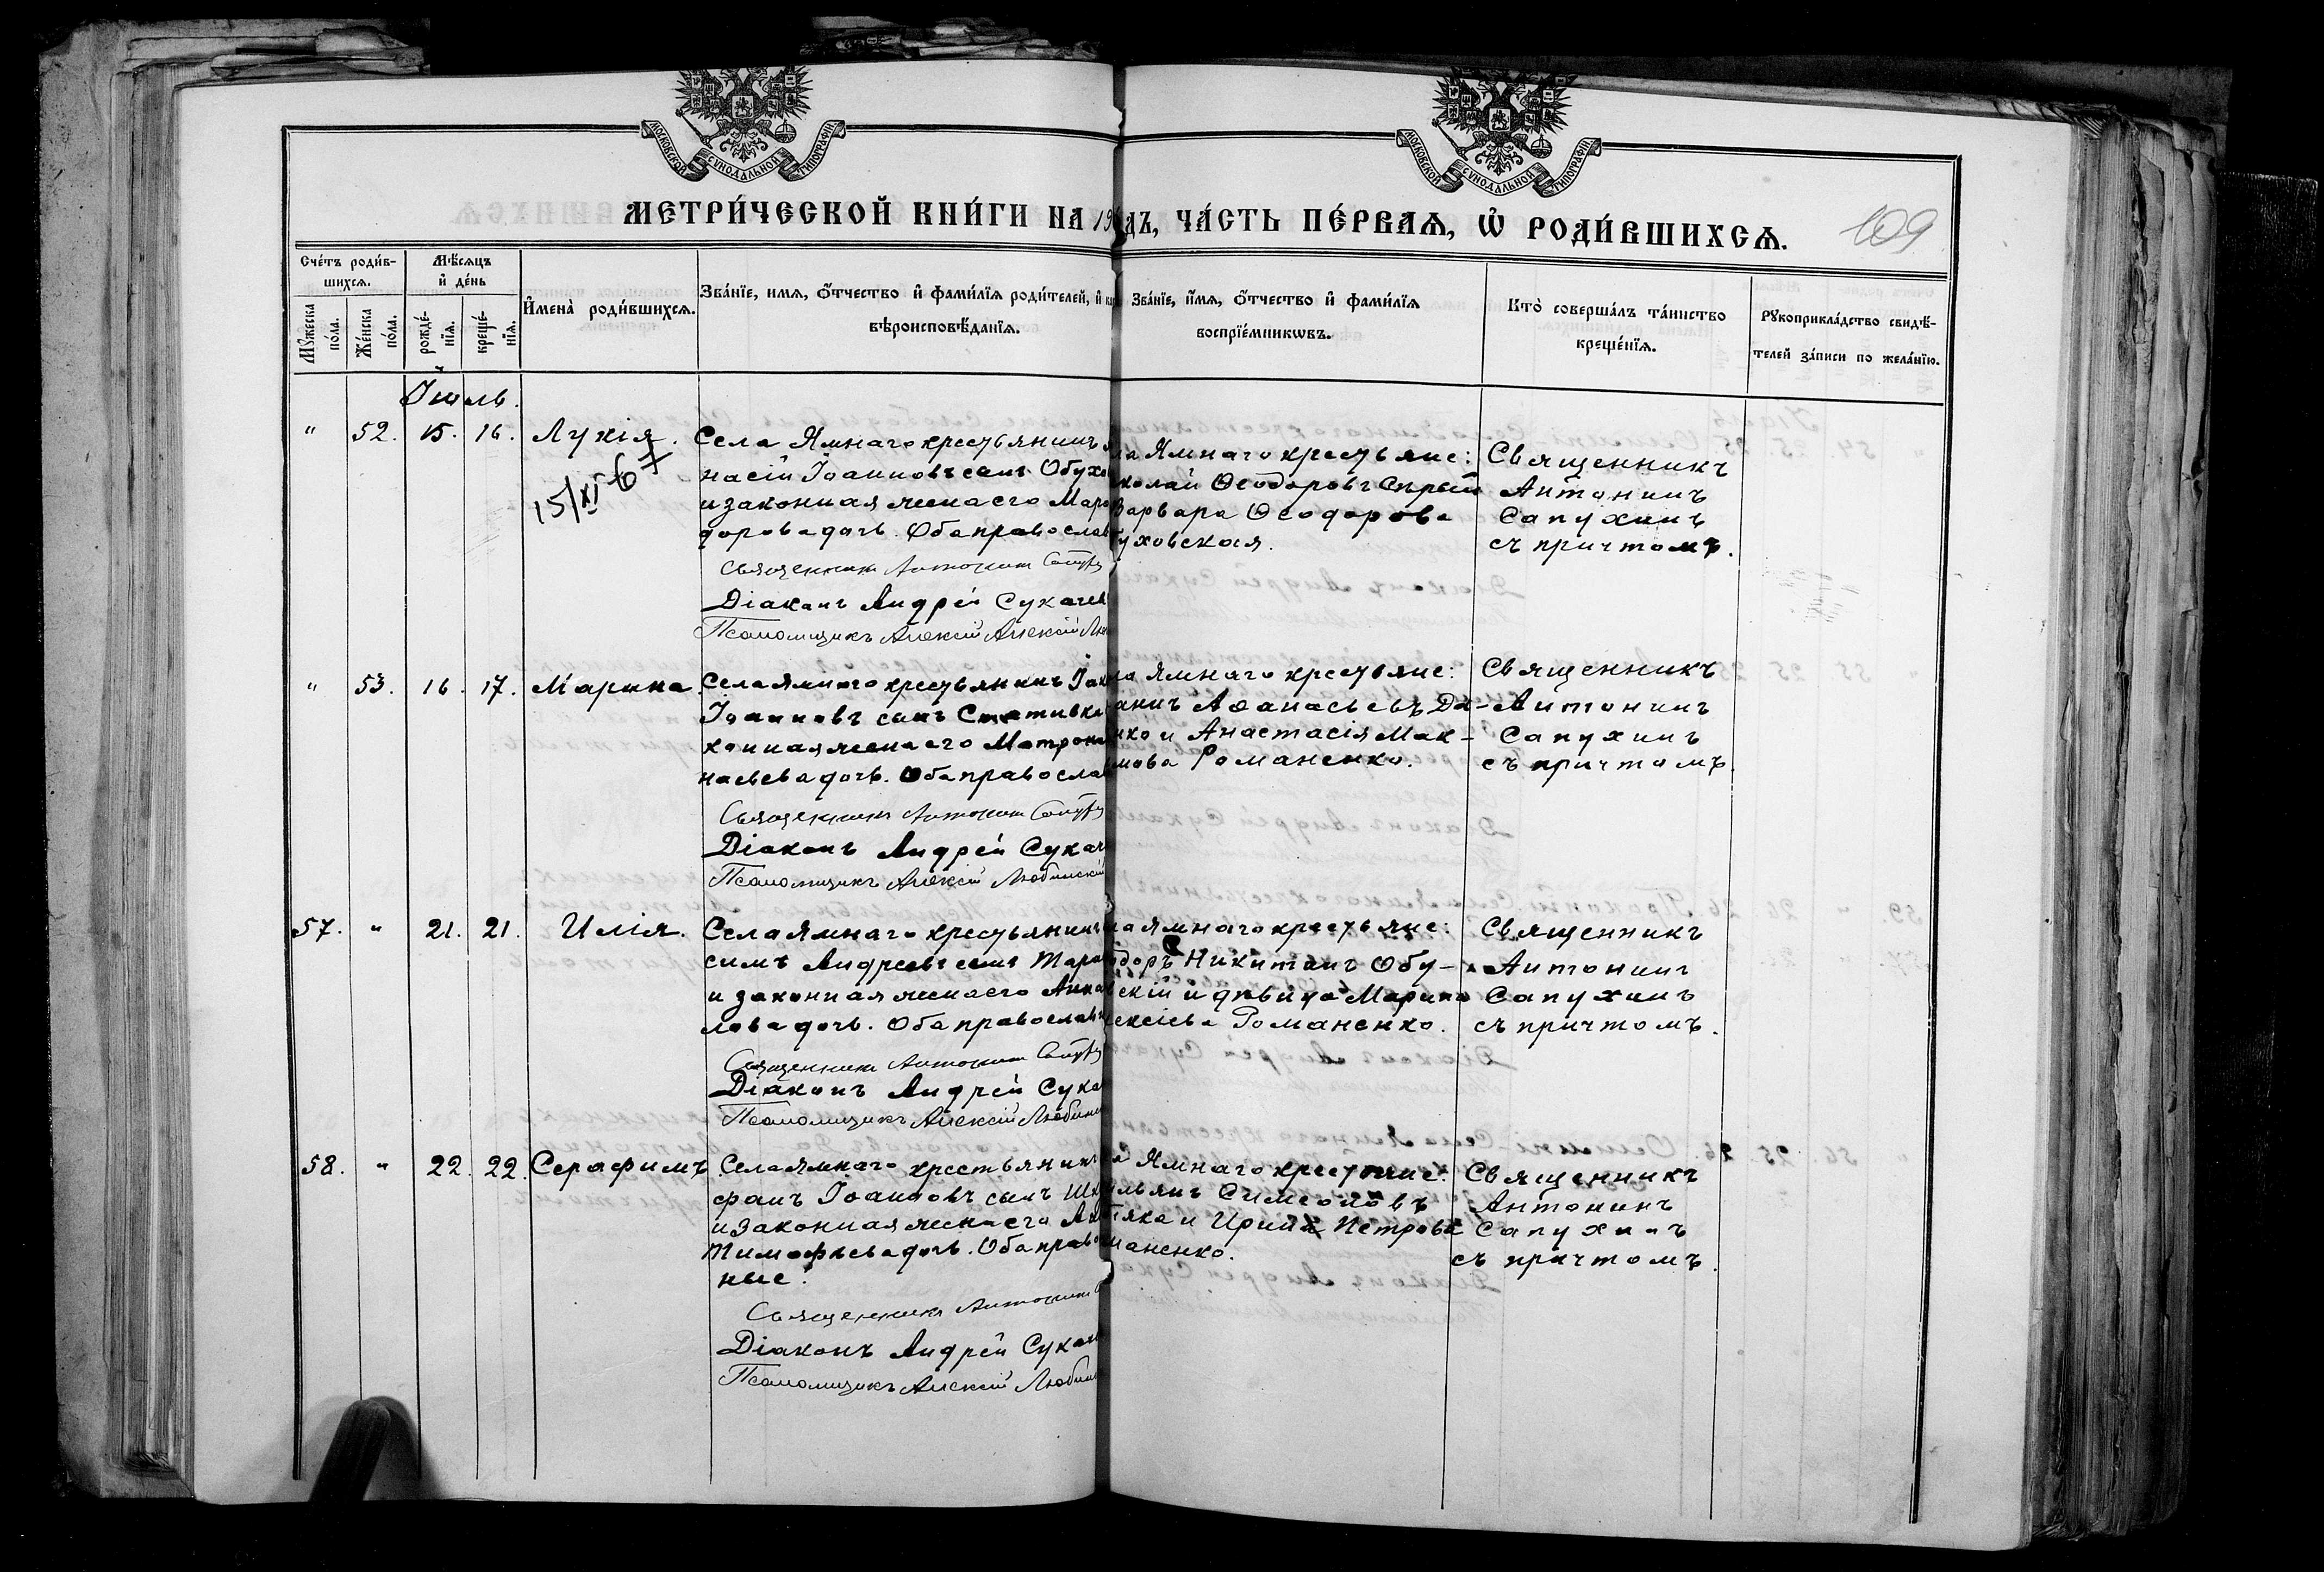 МОСКОВСКОЙ СѴНОДАЛЬНОЙ ТИПОГРАФІИ
МОСКОВСКОЙ СѴНОДАЛЬНОЙ ТИПОГРАФІИ
МЕТРИ́ЧЕСКОЙ КНИ́ГИ НА 19 ДЪ, ЧА́СТЬ ПЕ́РВАѦ, Ѡ҆ РОДИ́ВШИХСѦ.
109
Сче́тъ роди́в-
шихсѧ.
Мѣ́сѧцъ
и҆ де́нь
Мꙋ́жеска
по́ла.
Же́нска
по́ла.
рожде́-
нїѧ.
креще́-
нїѧ.
И҆мена̀ роди́вшихсѧ.
Зва́нїе, имѧ, ѻ҆́тчество и҆ фами́лїѧ роди́телей, и҆
вѣроисповѣ́данїѧ.
Зва́нїе, и҆мѧ, ѻ҆́тчество и҆ фами́лїѧ
воспрїе́мникѡвъ.
Кто̀ соверша́лъ та́инство
креще́нїѧ.
Рꙋкоприкла́дство свидѣ́-
телей за́писи по жела́нїю.
Іюль.
" 52. 15. 16. Лукія.
15/XI 6
Села Ямнаго крестьянинъ
насій Іоанновъ сынъ Обухо
и законная жена его Мар
дорова дочь. Оба православ
Священникъ Антонин Сапух
Діаконъ Андрей Сукачев
Псаломщикъ Алексій Алексій Лю
ла Ямнаго крестьяне:
колай Ѳеодоровъ Сѣрый
Варвара Ѳеодорова
уховская.
Священникъ
Антонинъ
Сапухинъ
съ причтомъ.
" 53. 16. 17. Марина
Села Ямнаго крестьянинъ Іак
Іоанновъ сынъ Стативка
конная жена его Матрона
насьева дочь. Оба православ
Священникъ Антонин Сапух
Діаконъ Андрей Сукач
Псаломщикъ Алексій Любинскій
ла Ямнаго крестьяне:
аніилъ Аѳанасьевъ Да-
нко и Анастасія Мак-
мова Романенко.
Священникъ
Антонинъ
Сапухинъ
съ причтомъ.
57. " 21. 21. Илія.
Села Ямнаго крестьянинъ
симъ Андреевъ сынъ Тара
и законная жена его Анна
лова дочь. Оба православн
Священникъ Антонин Сапух
Діаконъ Андрей Сука
Псаломщикъ Алексій Любин
ла Ямнаго крестьяне:
доръ Никитинъ Обу-
вскій и дѣвица Марина
лексіева Романенко.
Священникъ
Антонинъ
Сапухинъ
съ причтомъ.
58. " 22. 22. Серафимъ
Села Ямнаго крестьянинъ
фанъ Іоанновъ сынъ Шк
и законная жена его Ан
Тимофѣева дочь. Оба право
ные.
Священникъ Антонин
Діаконъ Андрей Сукач
Псаломщикъ Алексій Любин
а Ямнаго крестьяне:
ильянъ Симеоновъ
яка и Ирина Петрова
маненко.
Священникъ
Антонинъ
Сапухинъ
съ причтомъ.